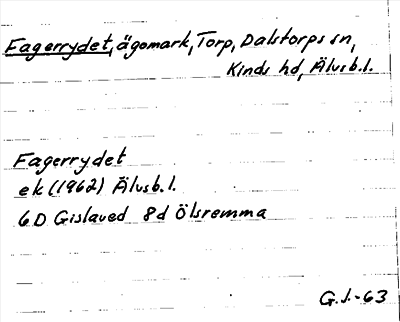 Fagerrydet, ägomark, Torp, Dalstorps sn,
Kinds hd, Älvsb. l.
Fagerrydet
ek (1962) Älvsb. l.
6D Gislaved 8d Ölsremma
G.J.-63